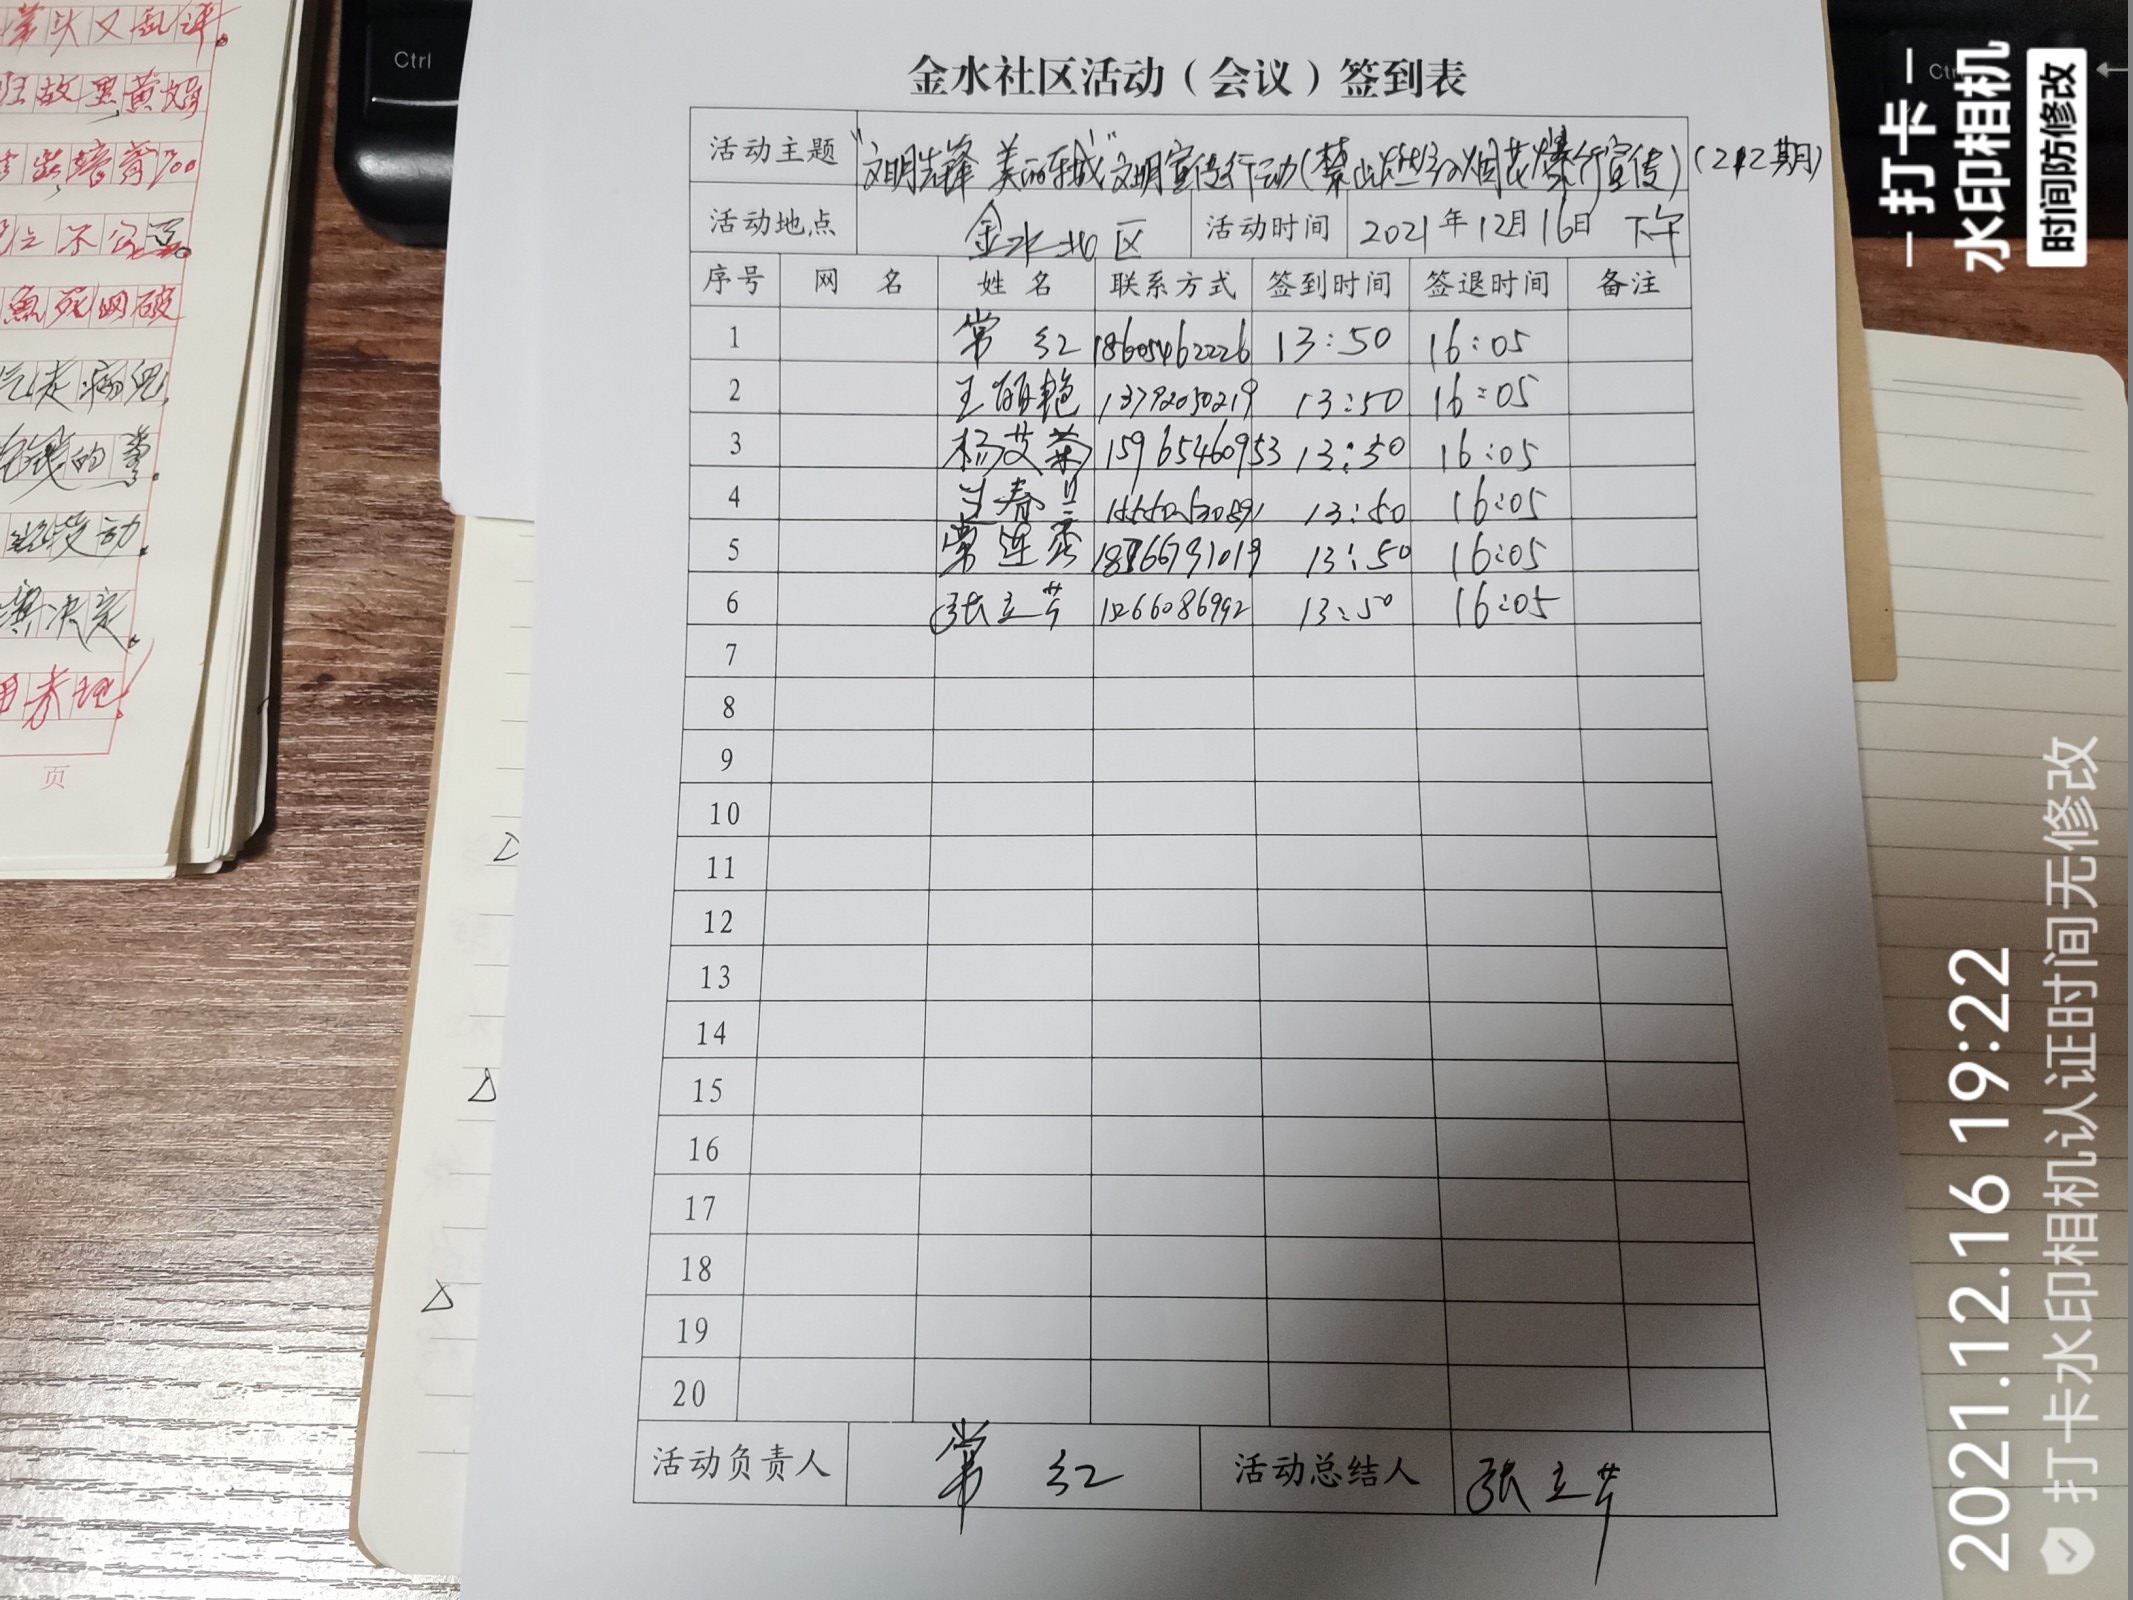 金水社区活动（会议）签到表
活动主题 "文明先锋 美丽东城"文明宣传行动(禁止燃放烟花爆竹宣传)(212期)
活动地点 金水北区 活动时间 2021年12月16日 下午
序号 网 名 姓 名 联系方式 签到时间 签退时间 备注
1 常 红 18605462226 13:50 16:05
2 王丽艳 13792050219 13:50 16:05
3 杨艾荣 15965460953 13:50 16:05
4 春兰 13:50 16:05
5 常连秀 18766791019 13:50 16:05
6 张立芳 13:50 16:05
7
8
9
10
11
12
13
14
15
16
17
18
19
20
活动负责人 常 红 活动总结人 张立芳
带头又乱评。
故里黄娟
培育700
不公平。
鱼死网破
气走病鬼,
花钱的事。
动。
决定。
页
Ctrl
Ctr
打卡
水印相机
时间防修改
2021.12.16 19:22
打卡水印相机认证时间无修改